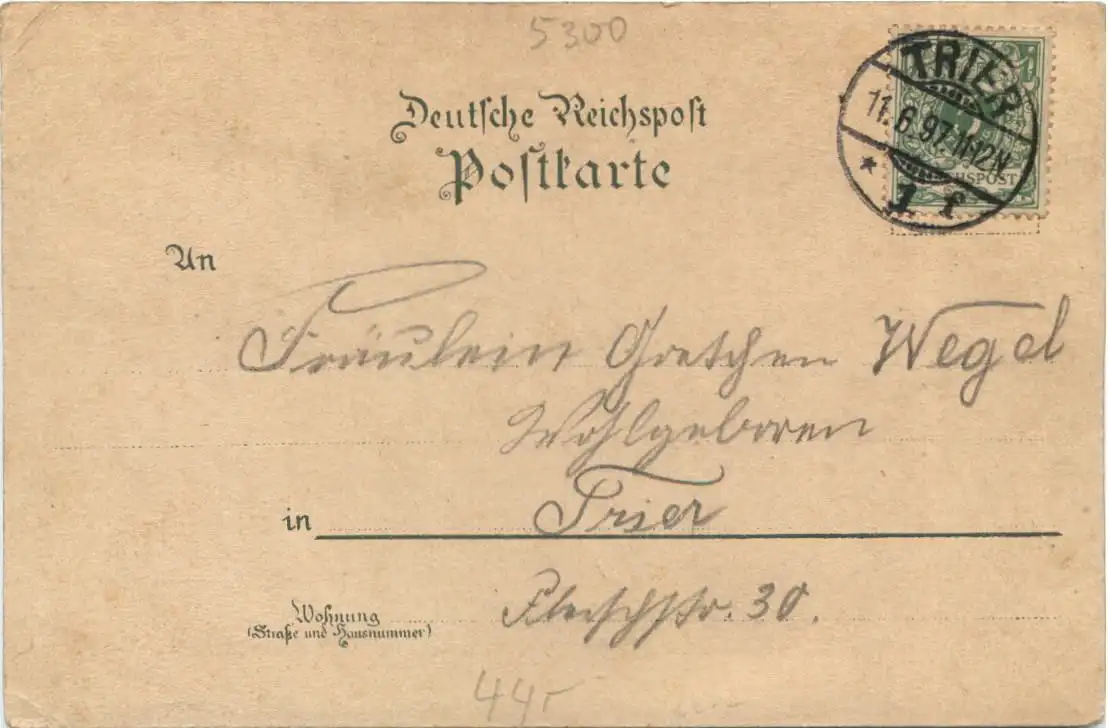 5300
Deutsche Reichspost
Postkarte
TRIER
11.6.97.11-12N.
* 1 f
REICHSPOST
An
Fräulein Gretchen Wegel
Wohlgeboren
in Trier
Wohnung
(Straße und Hausnummer)
Fleischstr. 30.
44,-